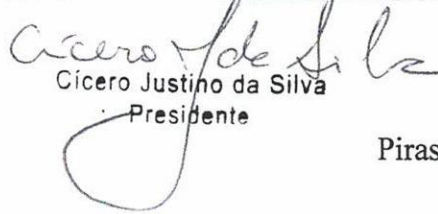 Cícero J de Silva
Cícero Justino da Silva
Presidente
Piras